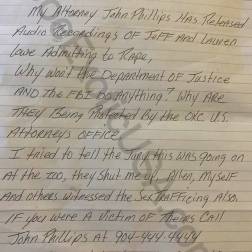 My Attorney John Phillips Has Released
Audio Recordings OF JeFF And Lauren
Lowe Admitting to Rape,
Why won't the Department oF Justice
AND The FBI Do Anything? Why Are
THEY Being Protected By the OKC U.S.
Attorneys OFFice.
I tried to tell the Jury this was going on
At the zoo, they shut me up, Allen, Myself
And others witnessed the Sex TraFFicing Also.
IF you were A Victim oF Theirs Call
John Phillips At 904-444-4444